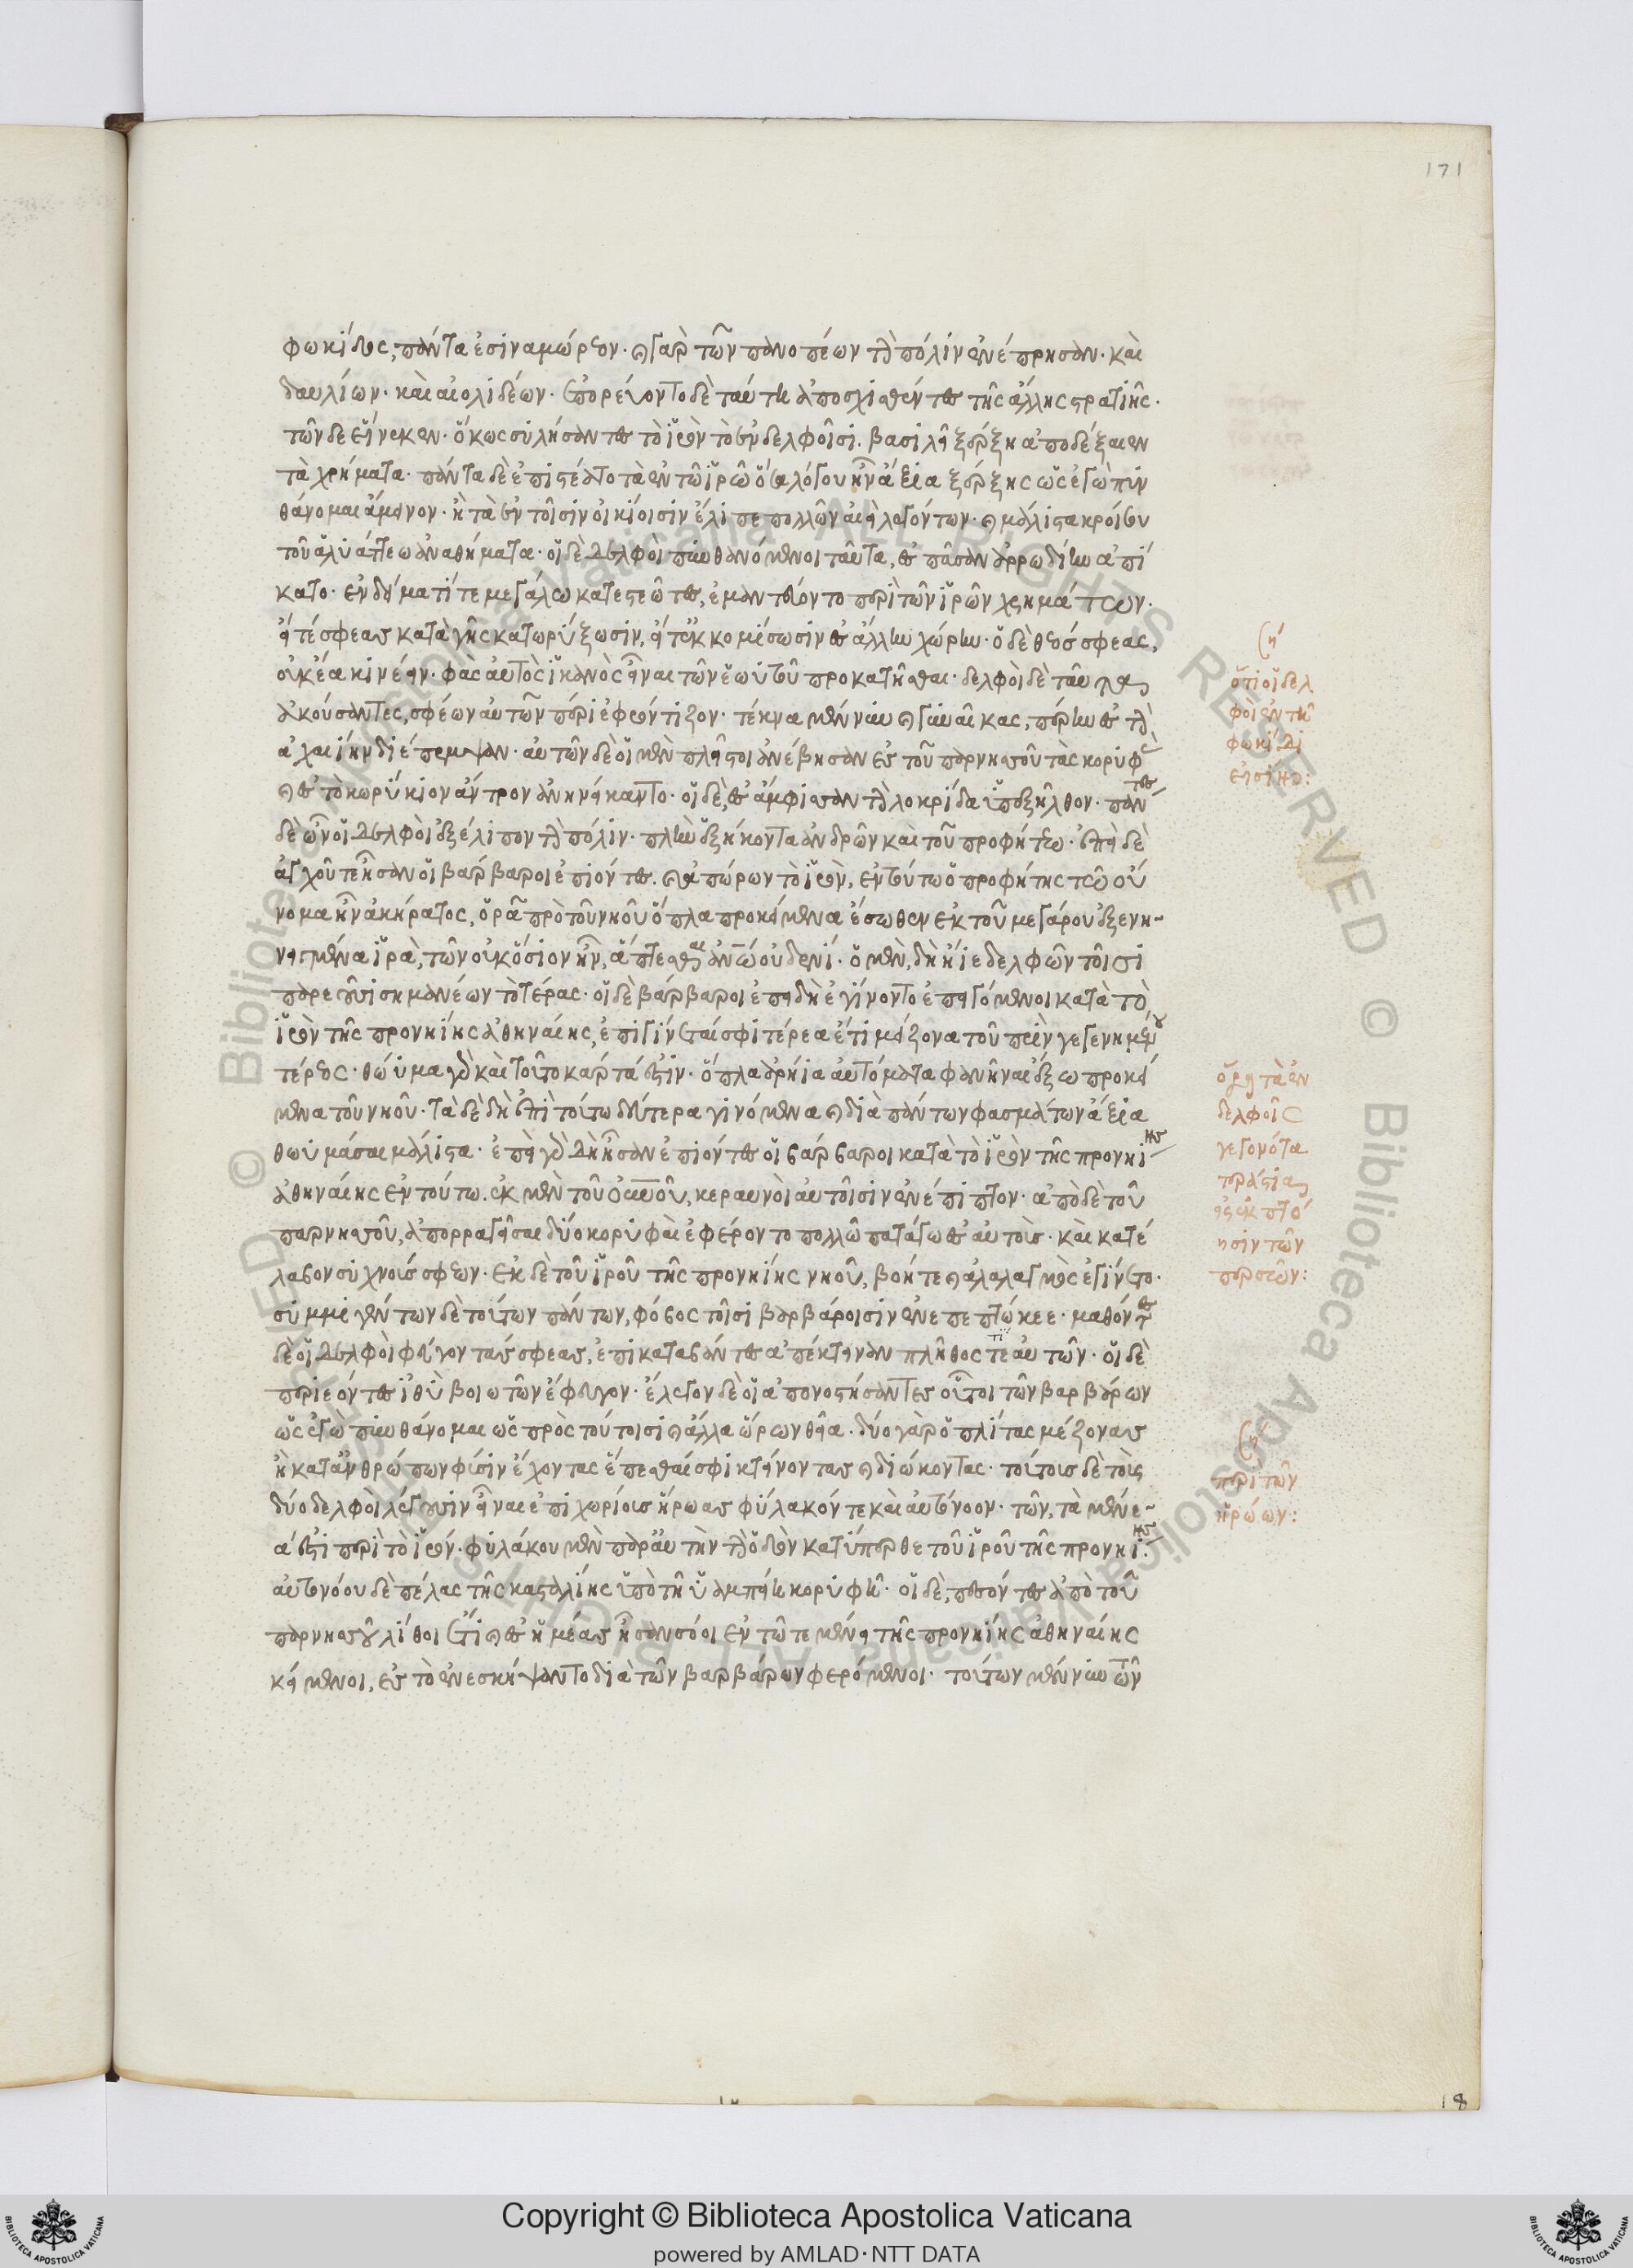 171
φωκίδος, πάντα ἐσιναμώρεον· καὶ γὰρ τῶν πανοπέων τὴν πόλιν ἐνέπρησαν· καὶ
δαυλίων· καὶ αἰολιδέων· ἐπορεύοντο δὲ ταύτῃ ἀποσχισθέντες τῆς ἄλλης στρατιῆς·
τῶνδε εἵνεκεν· ὅκως συλήσαντες τὸ ἱρὸν τὸ ἐν δελφοῖσι. βασιλῆι ξέρξῃ ἀποδέξαιεν
τὰ χρήματα· πάντα δὲ ἐπιστέατο τὰ ἐν τῷ ἱρῷ ὅσα λόγου ἦν ἄξια ξέρξης ὡς ἐγὼ πυν
θάνομαι ἄμεινον· ἢ τὰ ἐν τοῖσιν οἰκίοισιν ἔλιπε πολλῶν αἰεὶ λεγόντων· καὶ μάλιστα κροίσου
τοῦ ἀλυάττεω ἀναθήματα· οἱ δὲ δελφοὶ πυνθανόμενοι ταῦτα, ἐς πᾶσαν ἀρρωδίην ἀπί
κατο· ἐν δείματί τε μεγάλῳ κατεστεῶτες, ἐμαντεύοντο περὶ τῶν ἱρῶν χρημάτων·
εἴτέ σφεας κατὰ γῆς κατωρύξωσιν, εἴτ' ἐκκομίσωσιν ἐς ἄλλην χώρην· ὁ δὲ θεός σφεας,
οὐκ ἔα κινέειν· φὰς αὐτὸς ἱκανὸς εἶναι τῶν ἑωυτοῦ προκατῆσθαι· δελφοὶ δὲ ταῦτα
ἀκούσαντες, σφέων αὐτῶν πέρι ἐφρόντιζον· τέκνα μέν νυν καὶ γυναῖκας, πέρην ἐς τὴν
ἀχαιίην διέπεμψαν· αὐτῶν δὲ οἱ μὲν πλεῖστοι ἀνέβησαν ἐς τοῦ παρνησοῦ τὰς κορυφὰς
καὶ ἐς τὸ κωρύκιον ἄντρον ἀνηνείκαντο· οἱ δὲ, ἐς ἄμφισσαν τὴν λοκρίδα ὑπεξῆλθον· πάντες
δὲ ὦν οἱ δελφοὶ ἐξέλιπον τὴν πόλιν· πλὴν ἑξήκοντα ἀνδρῶν καὶ τοῦ προφήτεω· ἐπεὶ δὲ
ἀγχοῦ τε ἦσαν οἱ βάρβαροι ἐπιόντες. καὶ ἀπώρων τὸ ἱρὸν, ἐν τούτῳ ὁ προφήτης τῷ οὔ
νομα ἦν ἀκήρατος, ὁρᾷ πρὸ τοῦ νηοῦ ὅπλα προκείμενα ἔσωθεν ἐκ τοῦ μεγάρου ἐξενη
νειγμένα ἱρὰ, τῶν οὐκ ὅσιον ἦν, ἅπτεσθαι ἀνθρώπων οὐδενί. ὁ μὲν, δὴ ἤιε δελφῶν τοῖσι
παρεοῦσι σημανέων τὸ τέρας· οἱ δὲ βάρβαροι ἐπειδὴ ἐγίνοντο ἐπειγόμενοι κατὰ τὸ
ἱρὸν τῆς προνηίης ἀθηναίης, ἐπιγίνεταί σφι τέρεα ἔτι μείζονα τοῦ πρὶν γεγενημένου
τέρεος· θῶυμα γὰρ καὶ τοῦτο κάρτα ἐστίν· ὅπλα ἀρήια αὐτόματα φανῆναι ἔξω προκεί
μενα τοῦ νηοῦ· τὰ δὲ δὴ ἐπὶ τούτῳ δεύτερα γινόμενα καὶ διὰ πάντων φασμάτων ἄξια
θωυμάσαι μάλιστα· ἐπεὶ γὰρ δὴ ἦσαν ἐπιόντες οἱ βάρβαροι κατὰ τὸ ἱρὸν τῆς προνηίης
ἀθηναίης ἐν τούτῳ. ἐκ μὲν τοῦ οὐρανοῦ, κεραυνοὶ αὐτοῖσιν ἐνέπιπτον· ἀπὸ δὲ τοῦ
παρνησοῦ, ἀπορραγεῖσαι δύο κορυφαὶ ἐφέροντο πολλῷ πατάγῳ ἐς αὐτούς· καὶ κατέ
λαβον συχνούς σφεων· ἐκ δὲ τοῦ ἱροῦ τῆς προνηίης νηοῦ, βοή τε καὶ ἀλαλαγμὸς ἐγίνετο·
συμμιγέντων δὲ τούτων πάντων, φόβος τοῖσι βαρβάροισιν ἐνεπεπτώκεε· μαθόντες
δὲ οἱ δελφοὶ φεύγοντάς σφεας, ἐπικαταβάντες ἀπέκτειναν πλῆθός τι αὐτῶν· οἱ δὲ
περιεόντες ἰθὺ βοιωτῶν ἔφευγον· ἔλεγον δὲ οἱ ἀπονοστήσαντες οὗτοι τῶν βαρβάρων
ὡς ἐγὼ πυνθάνομαι ὡς πρὸς τούτοισι καὶ ἄλλα ὥρων θεῖα· δύο γὰρ ὁπλίτας μέζονας
ἢ κατ' ἀνθρώπων φύσιν ἔχοντας ἕπεσθαί σφι κτείνοντας καὶ διώκοντας· τούτους δὲ τοὺς
δύο δελφοὶ λέγουσιν εἶναι ἐπιχωρίους ἥρωας φύλακόν τε καὶ αὐτόνοον· τῶν, τὰ τεμένε
ά ἐστι περὶ τὸ ἱρόν· φυλάκου μὲν παρ' αὐτὴν τὴν ὁδὸν κατύπερθε τοῦ ἱροῦ τῆς προνηίης·
αὐτονόου δὲ πέλας τῆς κασταλίης ὑπὸ τῇ ὑαμπείῃ κορυφῇ· οἱ δὲ, πεσόντες ἀπὸ τοῦ
παρνησοῦ λίθοι ἔτι καὶ ἐς ἡμέας ἦσαν σόοι ἐν τῷ τεμένει τῆς προνηίης ἀθηναίης
κείμενοι, ἐς τὸ ἐνεσκήψαντο διὰ τῶν βαρβάρων φερόμενοι· τούτων μέν νυν τῶν
ὅτι οἱ δελ
φοὶ ἐν τῇ
φωκίδι
εἰσὶν:
ὅρα τὰ ἐν
δελφοῖς
γεγονότα
τεράστια
εἰς ἔκπτό
ησιν τῶν
περσῶν:
περὶ τῶν
ἡρώων:
18
Copyright © Biblioteca Apostolica Vaticana
powered by AMLAD·NTT DATA